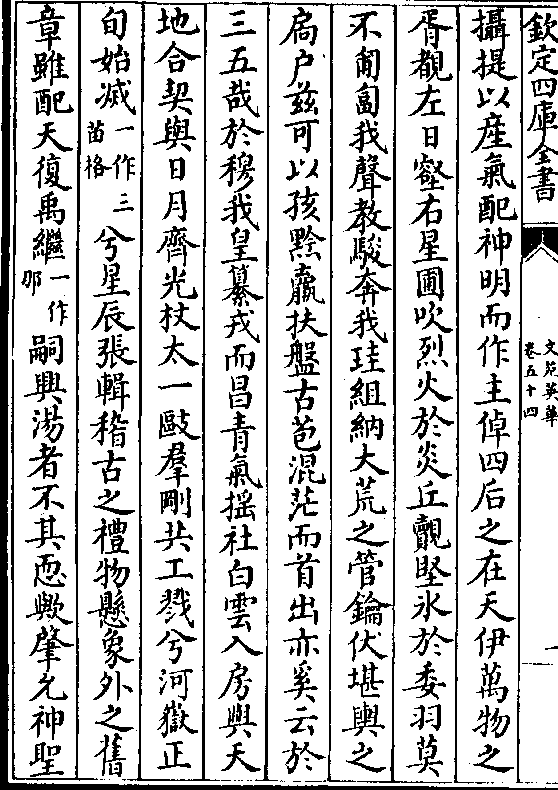 欽定四庫全書
文苑英華
卷五十四
攝提以産氣配神明而作主倬四后之在天伊萬物之
胥觀左日壑右星圃吹烈火於炎丘覿堅氷於委羽莫
不匍匐我聲教駿奔我珪組納大荒之管鑰伏堪輿之
扃户兹可以孩黔羸扶盤古苞混茫而首出亦奚云於
三五哉於穆我皇纂戎而昌青氣揺社白雲入房與天
地合契與日月齊光杖太一毆羣剛共工戮兮河嶽正
旬始烕一作三苗格兮星辰張輯稽古之禮物懸象外之舊
章雖配天復禹繼一作那嗣興湯者不其恧歟肇允神聖